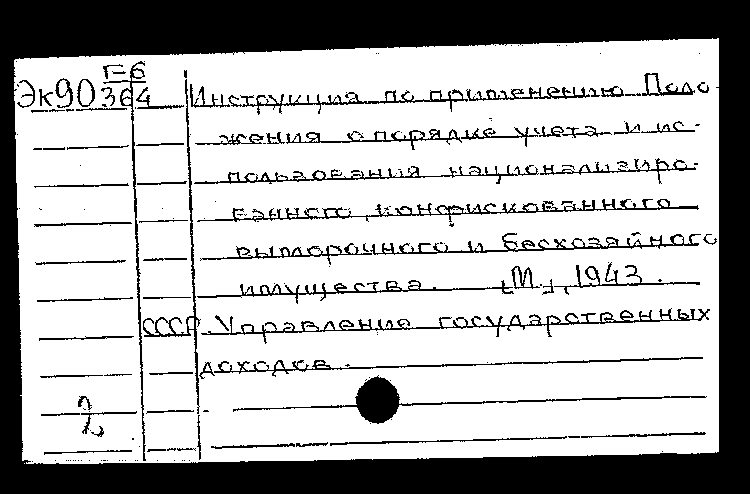 Г-6
Эк90 364 Инструкция по применению Поло-
жения о порядке учета и ис-
пользования национализиро-
ванного, конфискованного
выморочного и бесхозяйного
имущества. [М.], 1943.
СССР. Управление государственных
доходов.
2